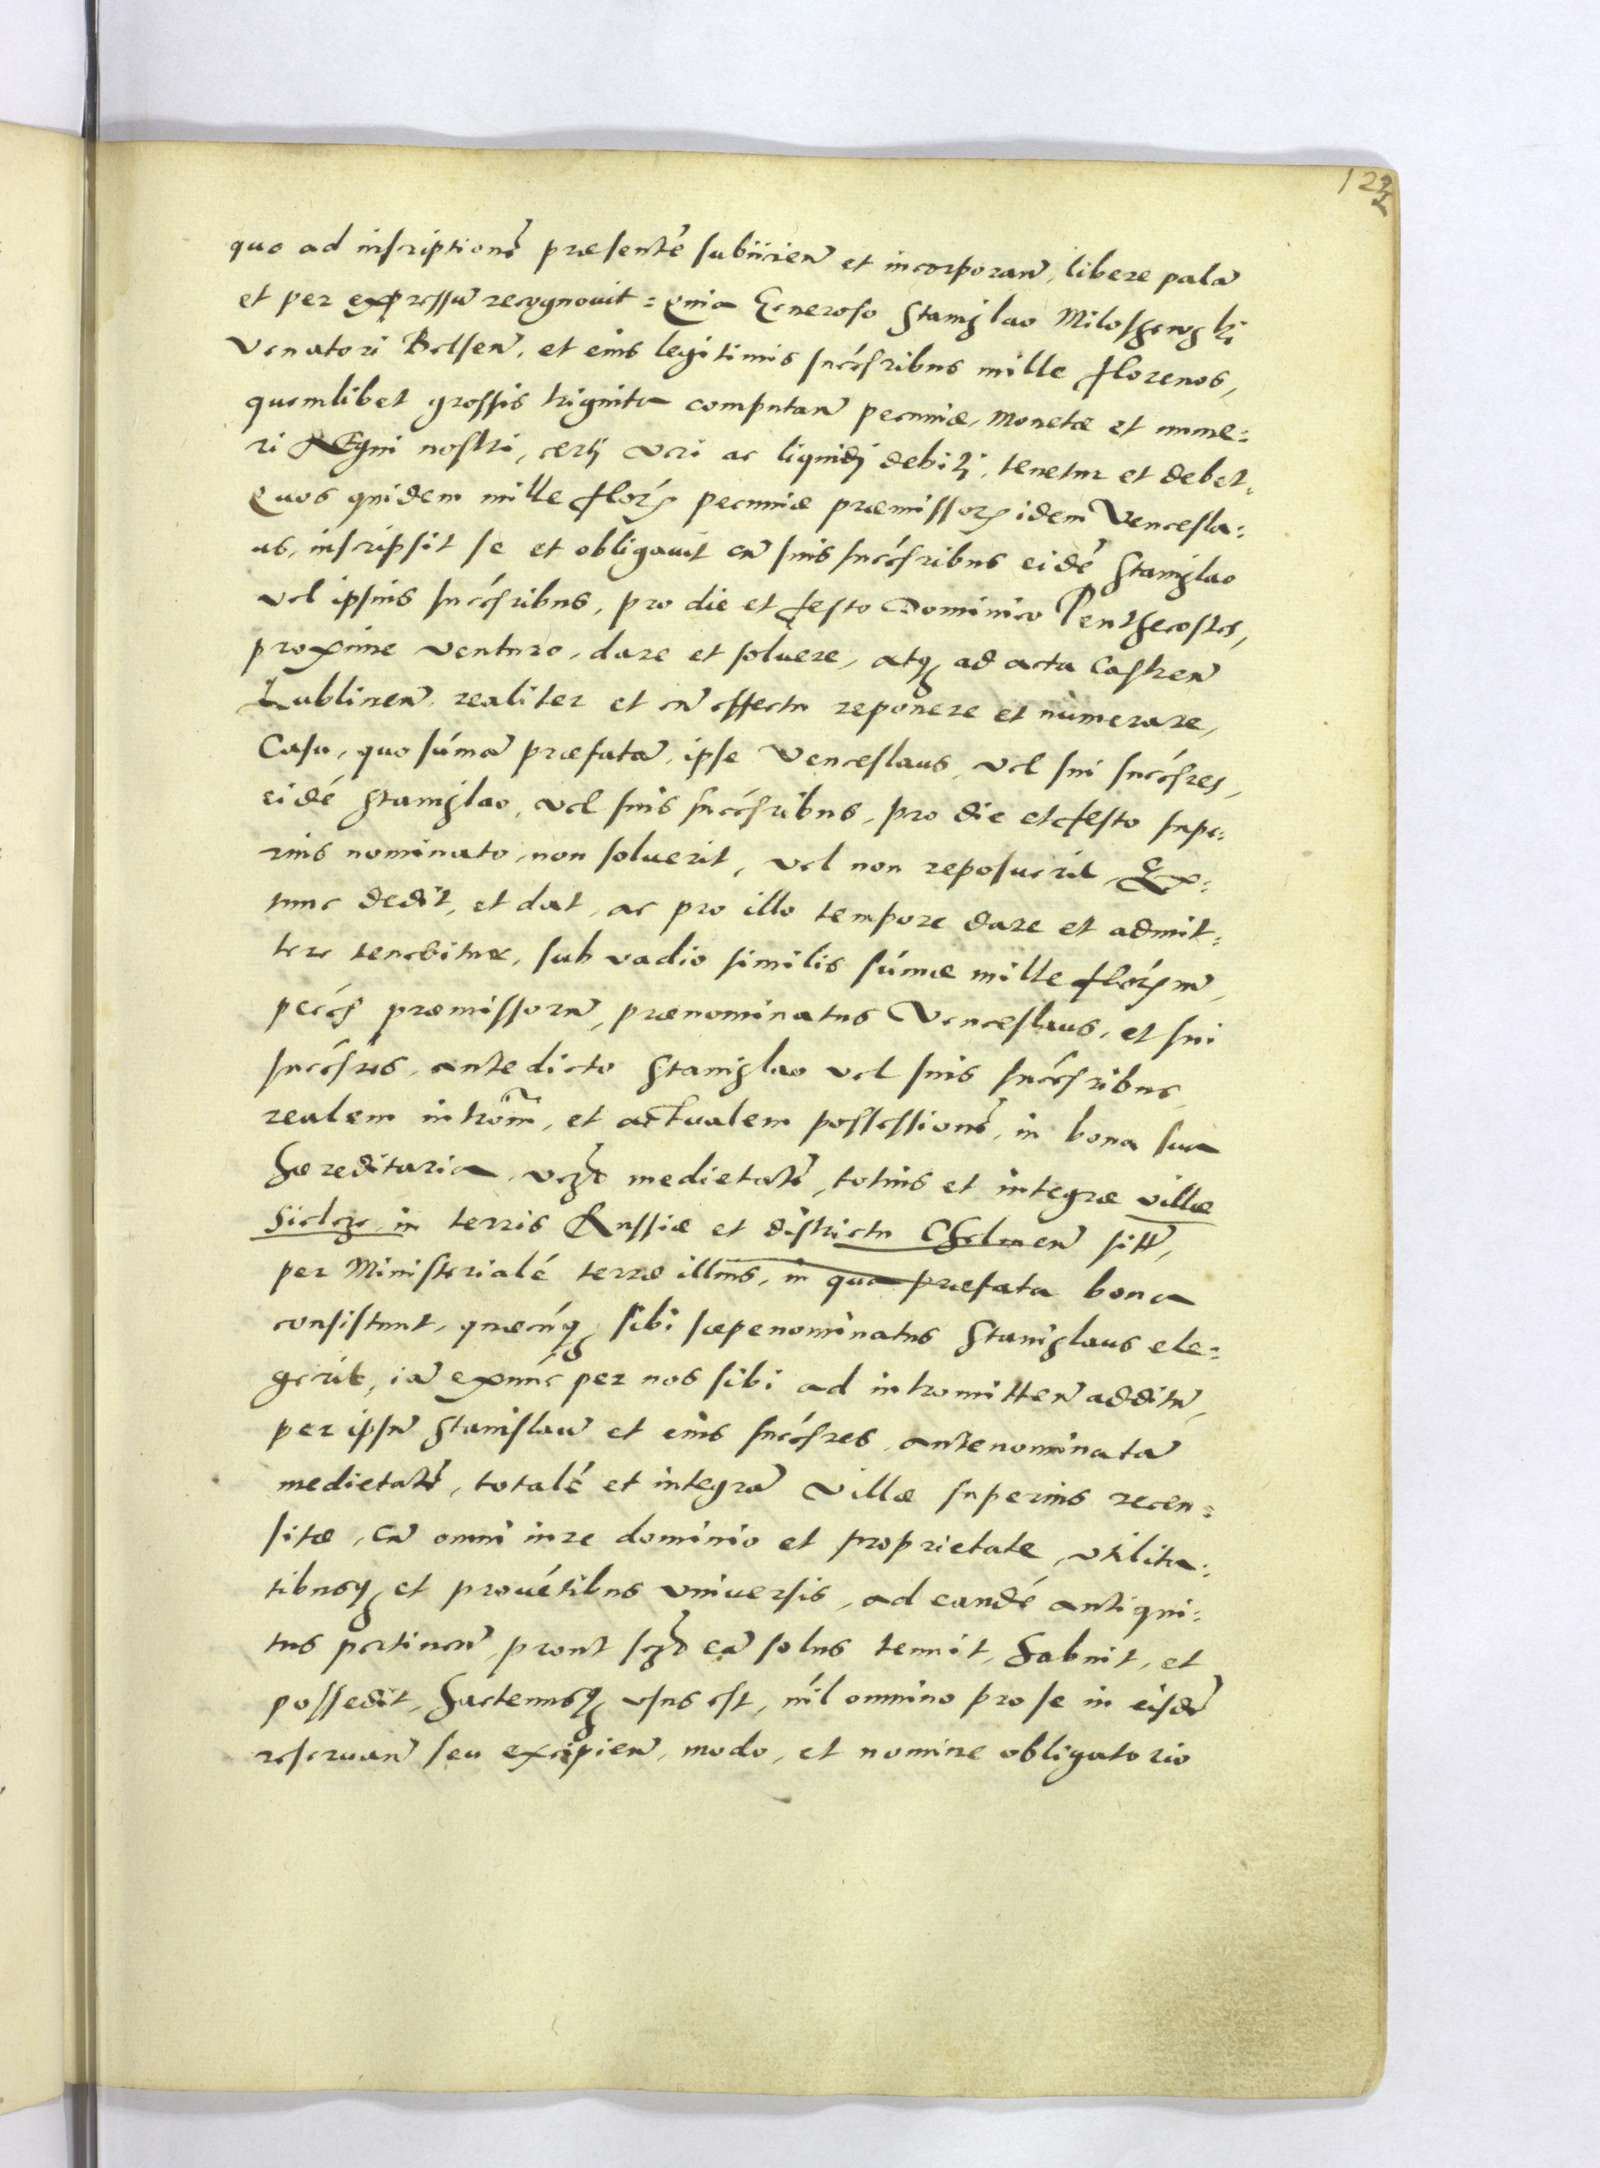 122
quo ad inscriptionẽ præsentẽ subiicien̄ et incorporan̄, libere palā
et per expressū recognovit = Quia Generoso Stanislao Miloshewski
Venatori Belsen̄. et eius legitimis succ̃sribus mille florenos,
quemlibet grossis triginta computan̄ pecuniæ, Monetæ et nume=
ri Regni nostri, certi veri ac liquidi debiti, tenetur et debet.
Quos quidem mille flor̃ pecuniæ præmissor̃ idem Vencesla=
us, inscripsit se et obligavit cū suis succ̃sribus eidẽ Stanislao
vel ipsius succ̃sribus, pro die et festo Dominico Penthecostes,
proxime venturo, dare et soluere, atq̃ ad acta Castren̄
Lublinen̄. realiter et cū effectu reponere et numerare,
Casu, quo sũmā præfatā, ipse Venceslaus, vel sui succ̃sres,
eidẽ Stanislao, vel suis succ̃sribus, pro die et festo supe=
rius nominato, non soluerit, vel non reposuerit, Ex=
tunc dedit, et dat, ac pro illo tempore dare et admit=
tere tenebitur, sub vadio similis sũmæ mille flor̃m,
pecc̃ præmissorū, prænominatus Venceslaus, et sui
succ̃sres, antedicto Stanislao vel suis succ̃sribus,
realem introm̃, et actualem possessionẽ, in bona sua
hæreditaria, vcz̃ medietatẽ, totius et integræ villæ
Sielcze in terris Russiæ et districtu Chelmen̄ sitt̄,
per Ministerialẽ terræ illius, in qua præfata bona
consistunt, quæcũq̃ sibi sæpenominatus Stanislaus ele=
gerit, iā exnũc per nos sibi ad intromitten̄ additū,
per ipsū Stanislaū et eius succ̃sres, antenominatā
medietatẽ, totalẽ et integrā Villæ superius recen=
sitæ, cū omni iure dominio et proprietate, vtilita=
tibusq̃ et prouẽtibus vniuersis, ad eandẽ antiqui=
tus pertinen̄, prout scz̃ eā solus tenuit, habuit, et
possedit, hactenusq̃ vsus est, nil omnino pro se in eisdẽ
reseruan̄ seu excipien̄, modo, et nomine obligatorio